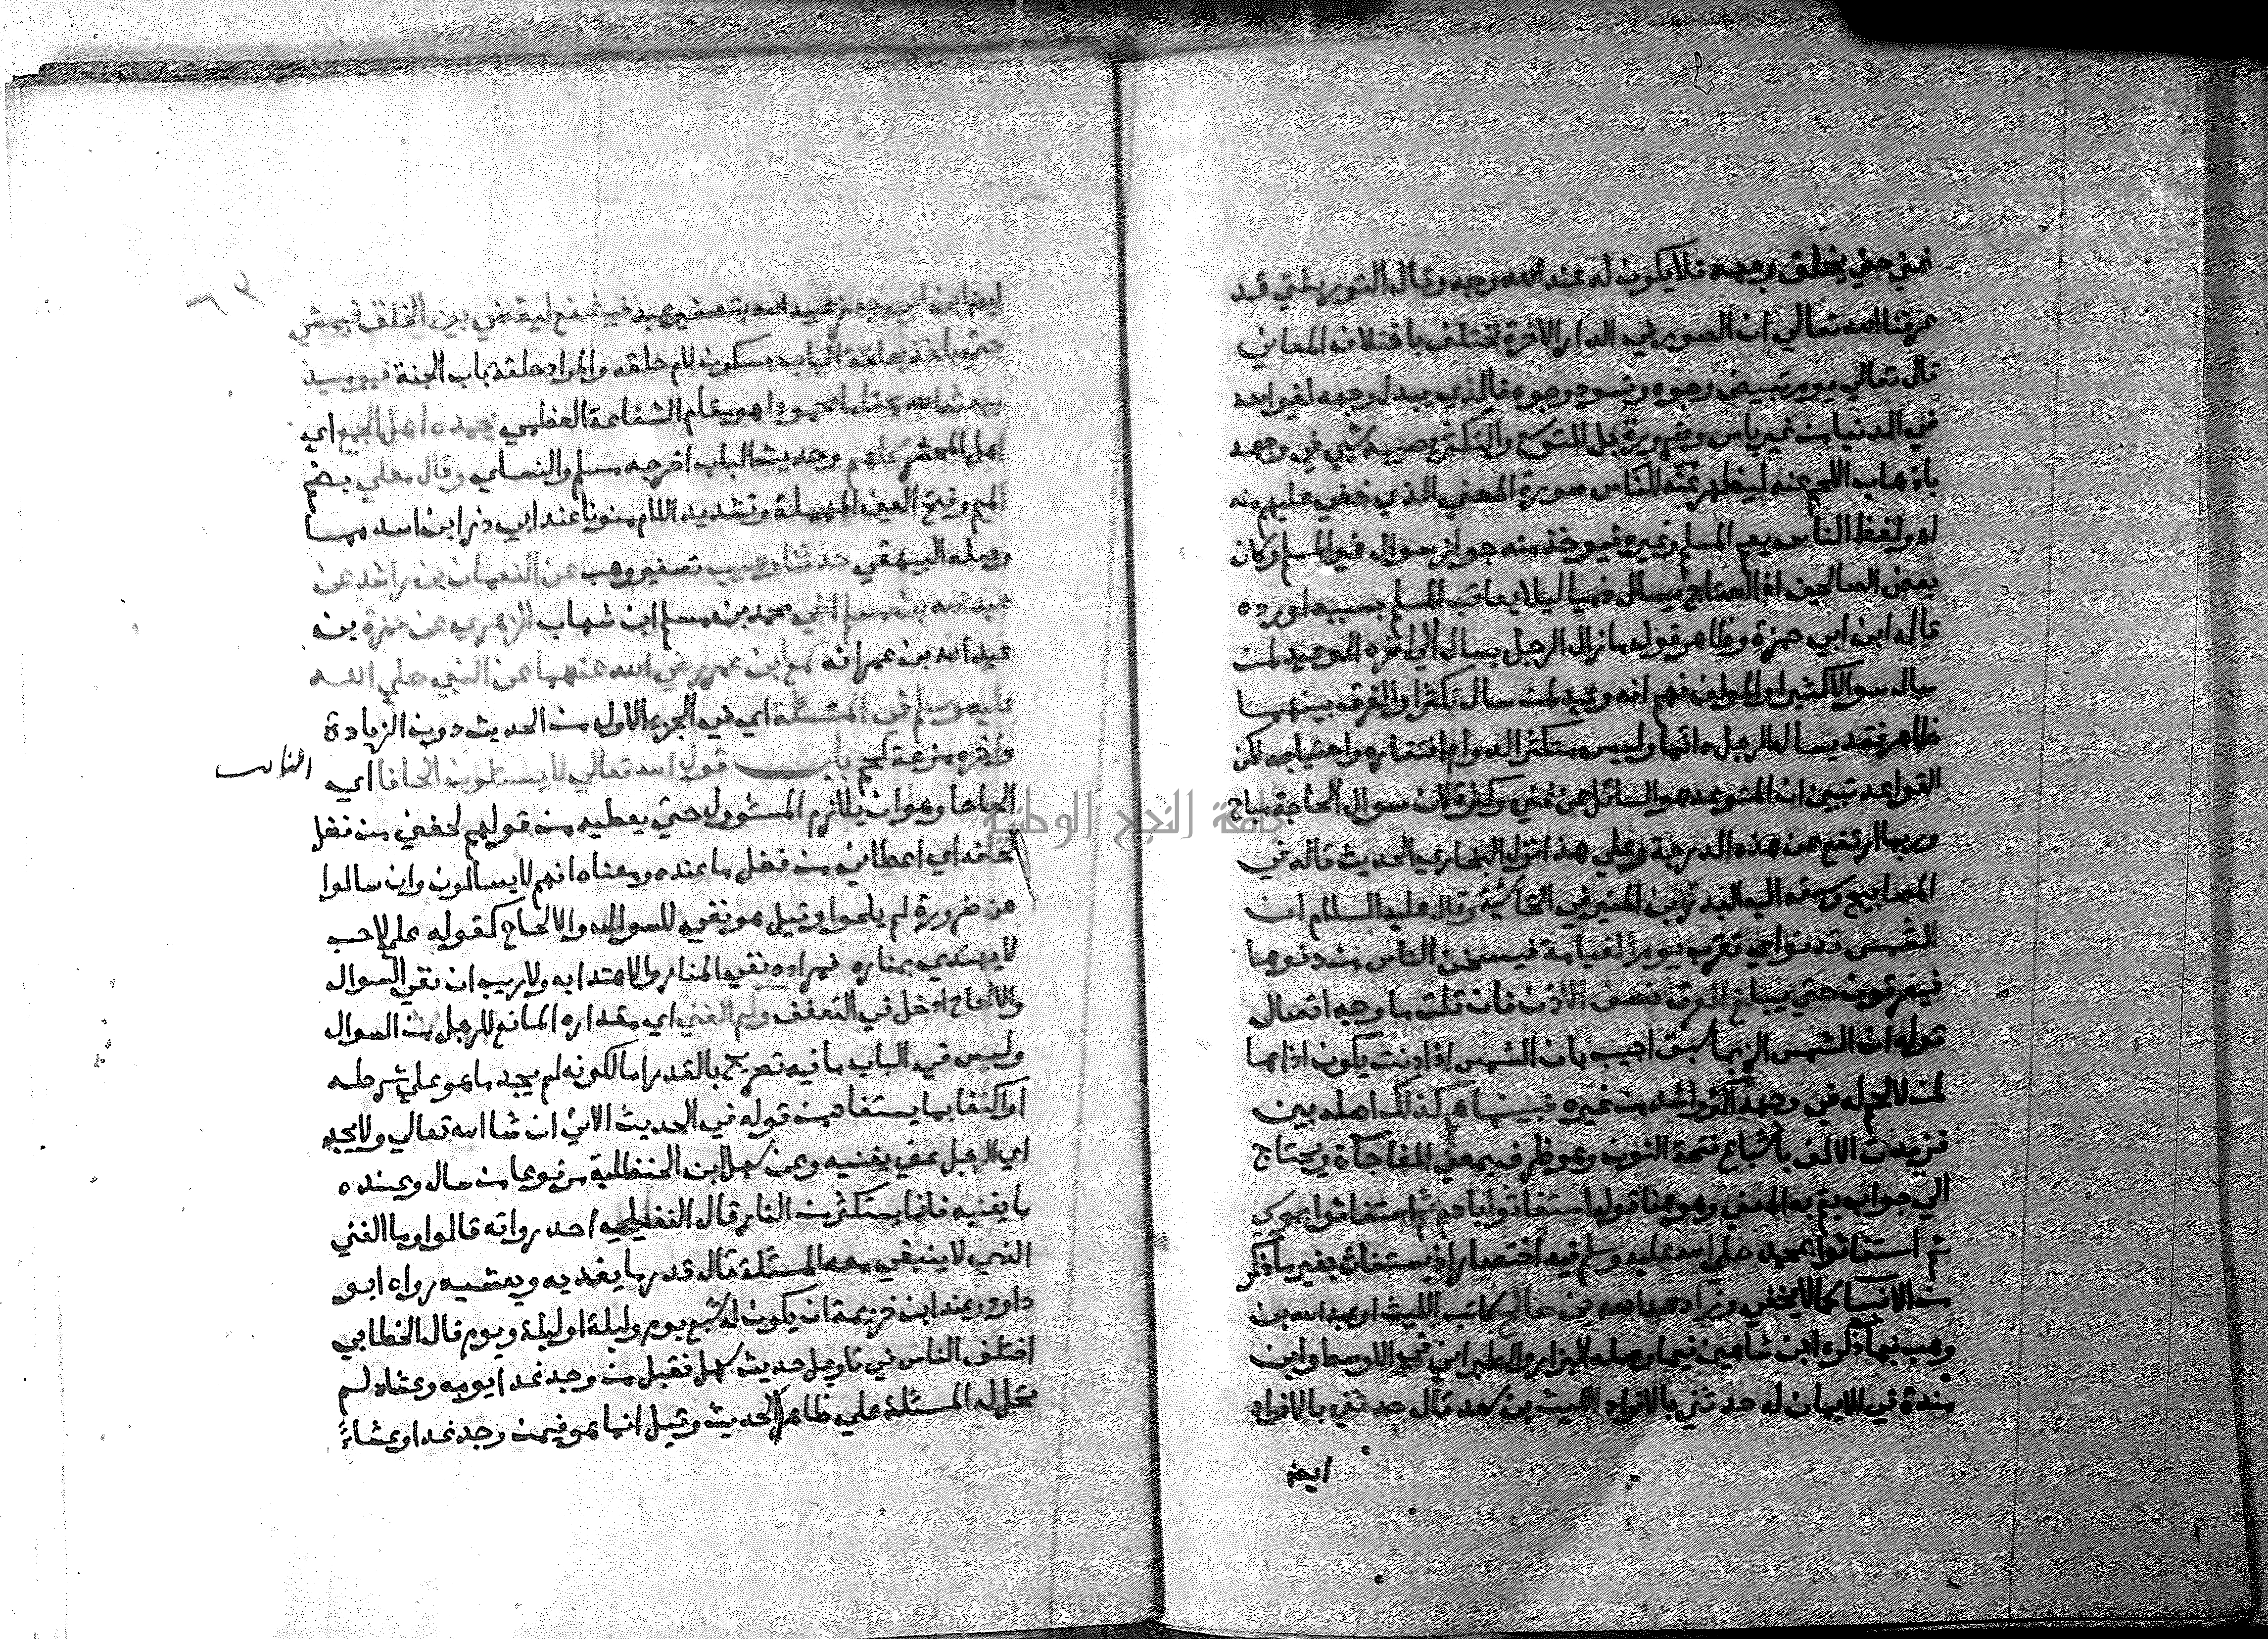 غني حتي يخلق وجهه فلا يكون له عند الله وجه وقال التوربشتي قد
عرفنا الله تعالي ان الصور في الدار الاخرة تختلف باختلاف المعاني
قال تعالي يوم تبيض وجوه وتسود وجوه فالذي يبدل وجهه لغير الله
في الدنيا من غير باس وضرورة بل للتوسع والتكثر يصيبه شي في وجهه
باذهاب اللحم عنه ليظهر للناس صورة المعني الذي خفي عليهم منه
اه ولفظ الناس يعم المسلم وغيره فيوخذ منه جواز سوال غير المسلم وكان
بعض الصالحين اذا احتاج يسال ذميا ليلا يعاقب المسلم بسببه لو رده
قاله ابن ابي جمرة وظاهر قوله ما زال الرجل يسال الي اخره الوعيد لمن
سال سوالا كثيرا والمولف فهم انه وعيد لمن سال تكثرا والفرق بينهما
ظاهر فقد يسال الرجل دائما وليس متكثرا لدوام افتقاره واحتياجه لكن
القواعد تبين ان المتوعد هو السائل عن غني وكثرة لان سوال الحاجة مباح
وربما ارتفع عن هذه الدرجة وعلي هذا نزل البخاري الحديث قاله في
المصابيح وسبقه اليه ابن المنير في الحاشية وقال عليه السلام ان
الشمس تدنو اي تقرب يوم القيامة فيسخن الناس من دنوها
فيعرقون حتي يبلغ العرق نصف الاذن فان قلت ما وجه اتصال
قوله ان الشمس الخ بما سبق اجيب بان الشمس اذا دنت يكون اذاها
لمن لا لحم له في وجهه اكثر واشد من غيره فبينما هم كذلك اصله بين
فزيدت الالف باشباع فتحة النون وهو ظرف بمعني المفاجاة ويحتاج
الي جواب يتم به المعني وهو هنا قوله استغاثوا بادم ثم استغاثوا بموسي
ثم استغاثوا بمحمد صلي الله عليه وسلم فيه اختصار اذ يستغاث بغير ما ذكر
من الانبيا كما لا يخفي وزاد عبد الله بن صالح كاتب الليث او عبد الله بن
وهب فيما ذكره ابن شاهين فيما وصله البزار والطبراني في الاوسط وابن
مندة في الايمان له حدثني بالافراد الليث بن سعد قال حدثني بالافراد
ايضا
ايضا ابن ابي جعفر عبيد الله بتصغير عبد فيشفع ليقضي بين الخلق فيمشي
حتي ياخذ بحلقة الباب بسكون لام حلقه والمراد حلقة باب الجنة فيوميذ
يبعثه الله مقاما محمودا هو مقام الشفاعة العظمي يحمده اهل الجمع اي
اهل المحشر كلهم وحديث الباب اخرجه مسلم والنسائي وقال معلي بضم
الميم وفتح العين المهملة وتشديد اللام منونا عند ابي ذر ابن اسد مما
وصله البيهقي حدثنا وهيب تصغير وهب عن النعمان بن راشد عن
عبد الله بن مسلم اخي محمد بن مسلم ابن شهاب الزهري عن حمزة بن
عبد الله بن عمر انه سمع ابن عمر رضي الله عنهما عن النبي صلي الله
عليه وسلم في المسئلة اي في الجزء الاول من الحديث دون الزيادة
واخره مزعة لحم باب قول الله تعالي لا يسئلون الحافا اي
الناس
الحاحا وهو ان يلازم المسئول حتي يعطيه من قولهم لحفني من فضل
لحافه اي اعطاني من فضل ما عنده ومعناه انهم لا يسالون وان سالوا
عن ضرورة لم يلحوا وقيل هو نفي للسوال والالحاح كقوله علي لاحب
لا يهتدي بمناره فمراده نفي المنار والاهتدا به ولا ريب ان نفي السوال
والالحاح ادخل في التعفف وكم الغني اي مقداره المانع للرجل من السوال
وليس في الباب ما فيه تصريح بالقدر اما لكونه لم يجد ما هو علي شرطه
او اكتفا بما يستفاد من قوله في الحديث الاتي ان شا الله تعالي ولا يجد
اي الرجل غني يغنيه وعن سهل ابن الحنظلية مرفوعا من سال وعنده
ما يغنيه فانما يستكثر من النار قال النفيلي احد رواته قالوا وما الغني
الذي لا ينبغي معه المسئلة قال قدر ما يغديه ويعشيه رواه ابو
داود وعند ابن خزيمة ان يكون له شبع يوم وليلة او ليلة ويوم قال الخطابي
اختلف الناس في تاويل حديث سهل فقيل من وجد غدا يومه وعشاه لم
تحل له المسئلة علي ظاهر الحديث وقيل انما هو فيمن وجد غدا وعشاء
جامعة النجاح الوطنية